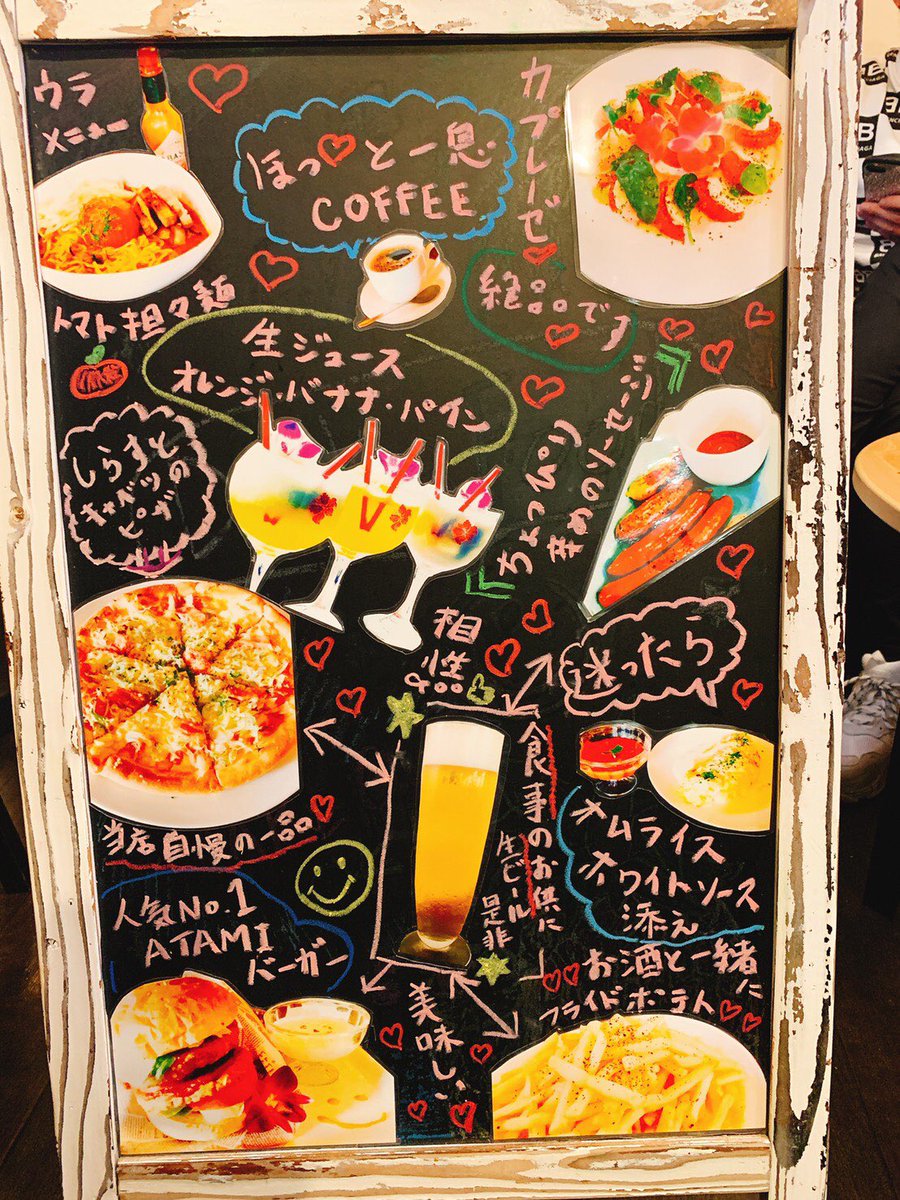 ウラ
メニュー
ほっと一息
COFFEE
カプレーゼ
絶品です
トマト担々麺
生ジュース
オレンジ・バナナ・パイン
ちょっぴり
辛めのソーセージ
しらすと
キャベツの
ピザ
相性
迷ったら
食事のお供に
生ビール是非
当店自慢の一品
オムライス
ホワイトソース
添え
人気No.1
ATAMI
バーガー
お酒と一緒に
フライドポテト
美味しい